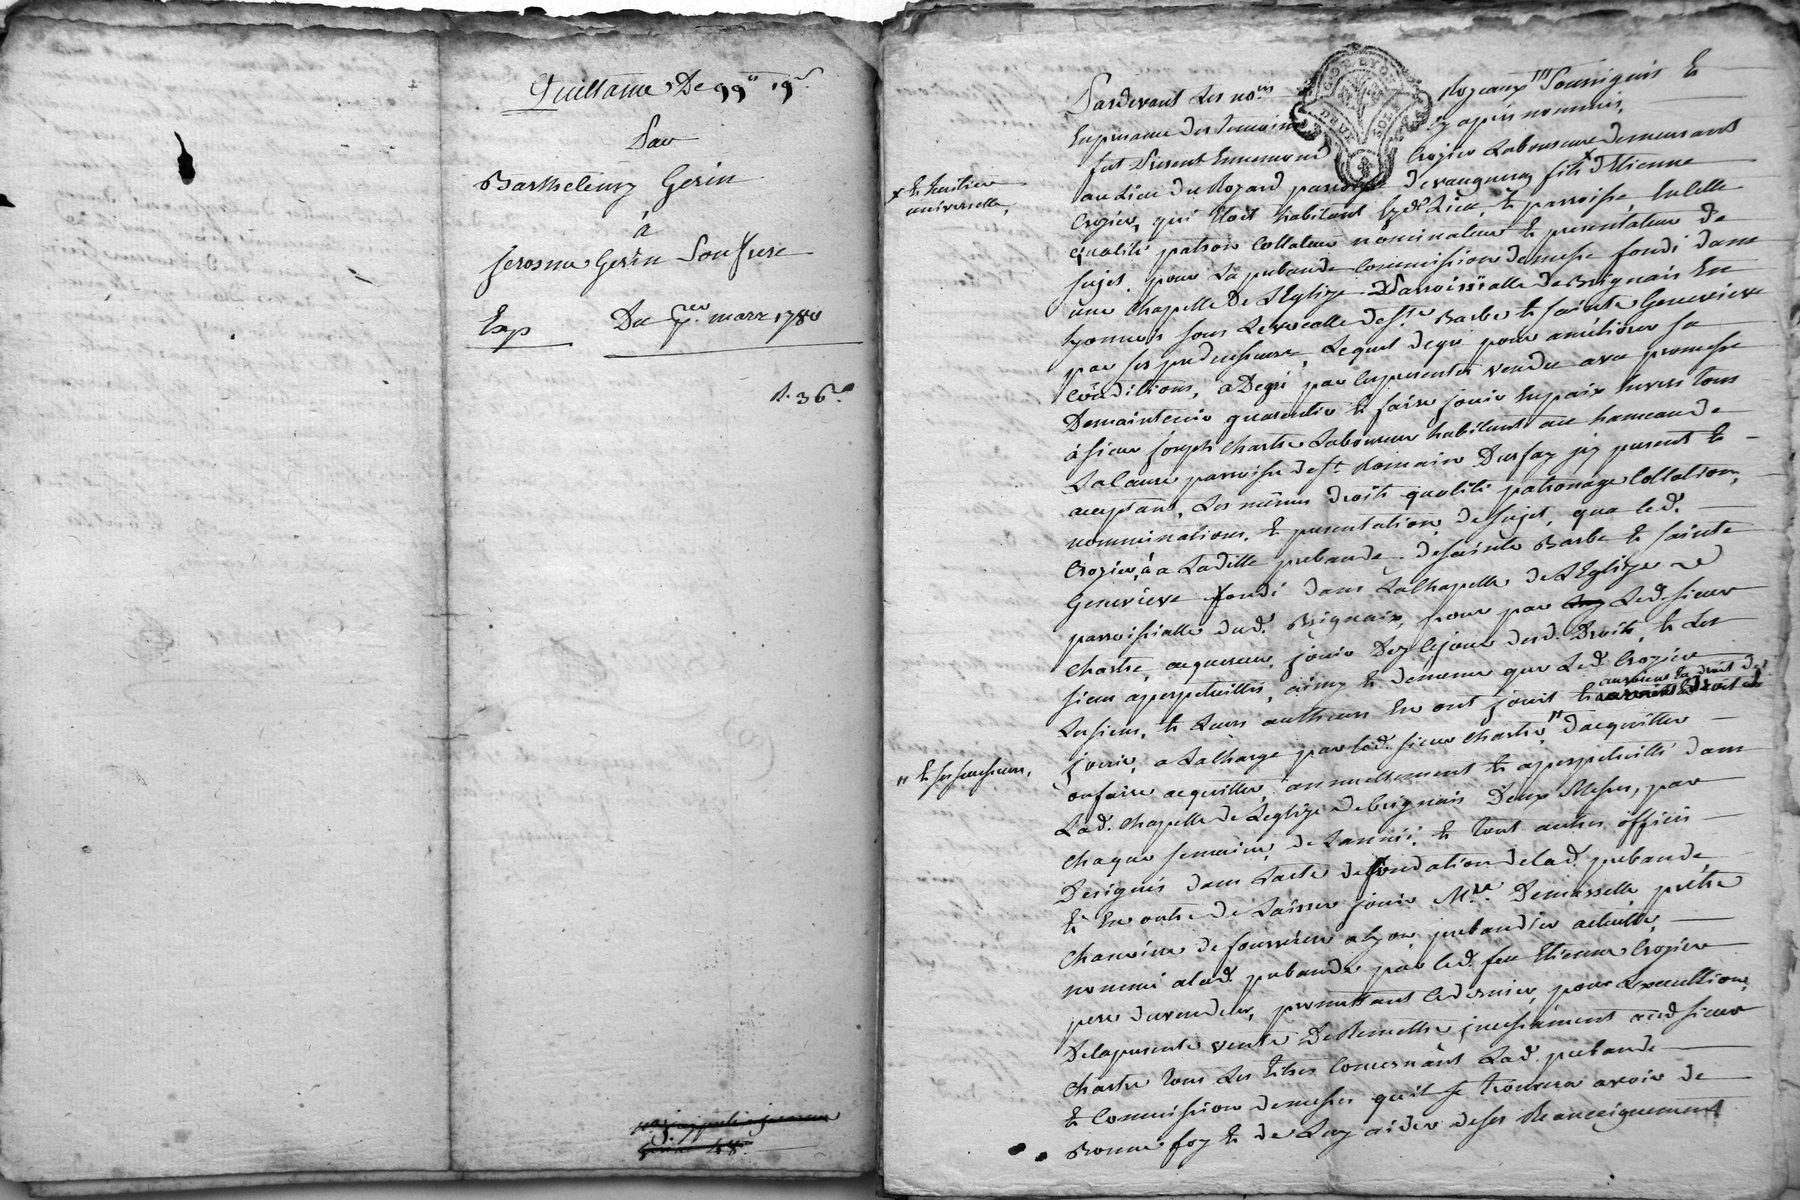 Quittance De 99# 19s
Par
Barthelemy Gerin
à
Jerosme Gerin Son frere
Exp Du 7. mars 1780
R. 36s
GDE LYON
DEUX SOLS
Pardevant Les no.res Royeaux Soussignés Et
En presence des Temoins Cy après nommés,
fut Present Ennemond Crozier Laboureur demeurant
au Lieu du Rozard paroisse de vaugneray fils x d'Etienne
x Et heritier
universelle,
Crozier, qui Etoit habitant Cyd.t Lieu, Et parroisse, En Cette
qualité patron Collateur nominateur Et presentateur de
sujet. pour La prebande Commission de messe fondé dans
une Chapelle De L'Eglize Parroissialle de Brignais En
Lyonnois sous Le vocable de S.te Barbe Et sainte Genevieve
par ses predecesseurs, Lequel de gré pour ameliorer sa
Conditions, a De gré par Ces presentes vendu avec promesse
De maintenir guarentir Et faire jouir En paix Envers tous
à sieur Joseph Chartre Laboureur habitant au hameau de
parroisse de S.t Romain icy present Et
acceptant, Les mêmes droits qualité patronage Collation,
nominations, Et presentation de sujet, que led.
Crozier, à a Laditte prebande, de sainte Barbe Et sainte
Genevieve fondé dans La Chapelle de L'Eglize
parroissialle dud. Brignais, pour par Led. sieur
Chartre, acquereur, jouir Dez Cejour desd. Droits, Et Les
siens apperpetuitté, ainsy Et de meme que Led. Crozier
Les siens, Et Leurs autheurs En ont jouit Et
jouir, a La Charge par led. sieur Chartre, " d'acquitter
" Et ses successeurs,
ou faire acquitter, annuellement Et apperpetuitté dans
Lad. Chapelle de L'Eglize de Brignais Deux Messes, par
Chaque semaine, de L'année, Et tout autres offices
Designés dans L'acte de fondation de lad. prebande,
Et En outre de Laisser jouir M.re Demasselle, prêtre
Chanoine de fourvière a Lyon, prebandier actuelle,
nommé a lad. prebande par led. feu Etienne Crozier
pere du vendeur, promettant Ce dernier, pour L'execultion,
De la presente vente De Remettre jncessament aud. sieur
Chartre tous Les titres Concernant Lad. prebande
Et Commission de messes qu'il se trouvera avoir de
Bonne foy Et de Luy aider de ses Reanceignement